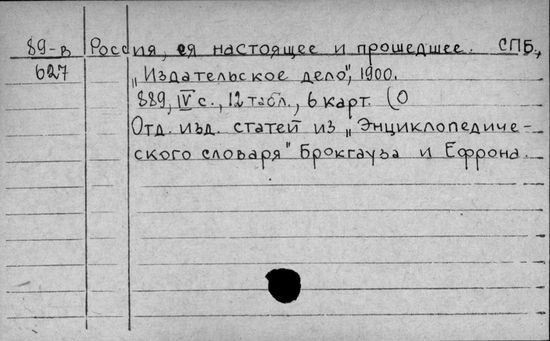 89-в Россия, ея настоящее и прошедшее. СПБ.,
627 „Издательское дело", 1900.
889, IV с., 12 табл., 6 карт.
Отд. изд. статей из „Энциклопедиче-
ского словаря" Брокгауза и Ефрона.